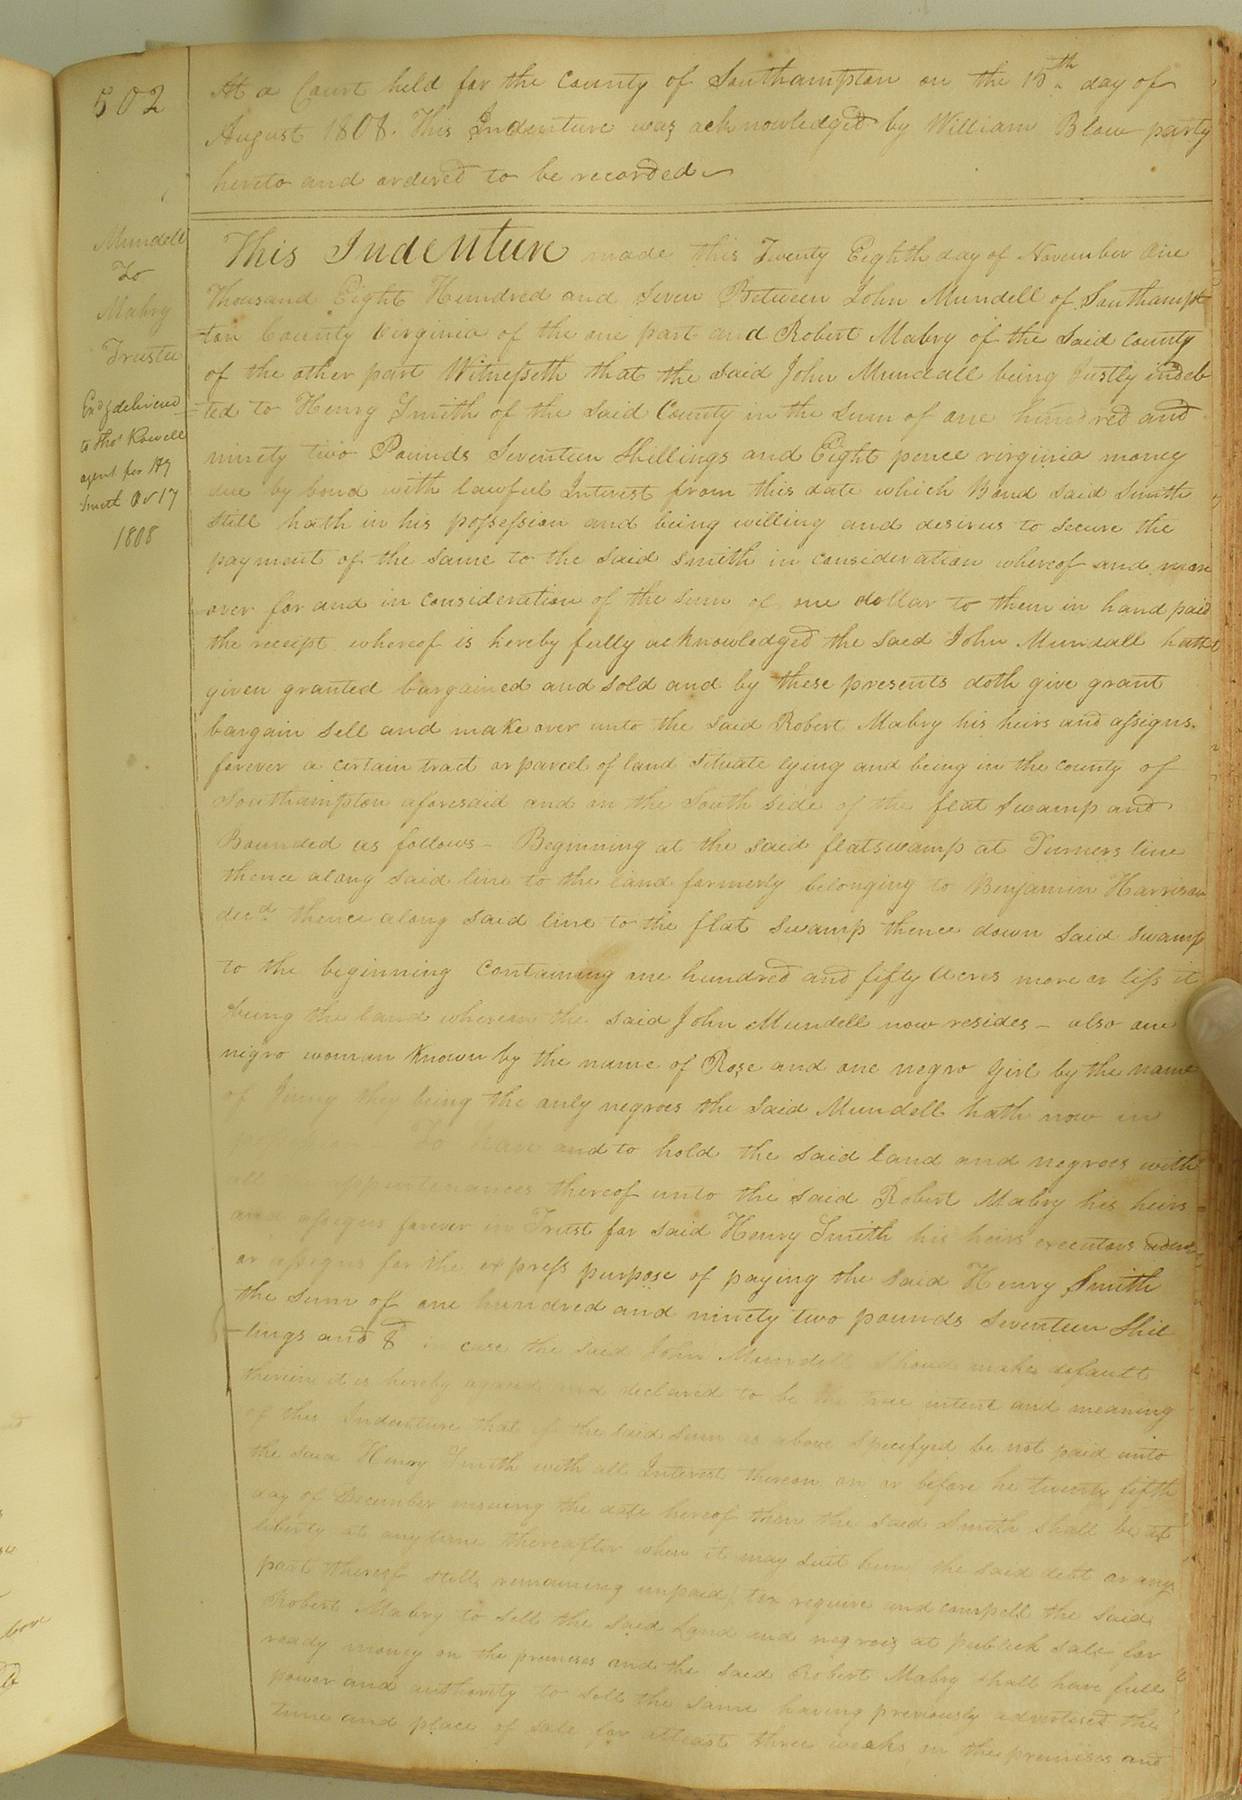 502
At a Court held for the County of Southampton on the 15th day of
August 1808. This Indenture was acknowledged by William Blow party
hereto and ordered to be recorded
Mundell
To
Mabry
Trustee
Exd & delivered
to Thos Rowell
agent for Hy
Smith Oct 17
1808
This Indenture made this Twenty Eighth day of November One
Thousand Eight Hundred and Seven Between John Mundell of Southamp
-ton County Virginia of the one part and Robert Mabry of the Said County
of the other part Witnesseth that the Said John Mundall being Justly indeb
-ted to Henry Smith of the Said County in the Sum of one hundred and
ninety two Pounds Seventeen Shillings and Eight pence virginia money
due by bond with lawful Interest from this date which Bond said Smith
still hath in his possession and being willing and desirus to secure the
payment of the same to the said Smith in consideration whereof and more
over for and in consideration of the sum of one dollar to them in hand paid
the receipt whereof is hereby fully acknowledged the said John Mundall hath
given granted bargained and sold and by these presents doth give grant
bargain sell and make over unto the said Robert Mabry his heirs and assigns.
forever a certain tract or parcel of land situate lying and being in the county of
Southampton aforesaid and on the South side of the flat swamp and
Bounded as follows - Beginning at the said flatswamp at Turners line
thence along said line to the land formerly belonging to Benjamin Harrison
decd. thence along said line to the flat swamp thence down said swamp
to the beginning Containing one hundred and fifty acres more or less it
being the land whereon the said John Mundell now resides - also one
nigro woman known by the name of Rose and one negro girl by the name
of Jenny they being the only negroes the said Mundell hath now in
To have and to hold the said land and negroes with
all thereof unto the said Robert Mabry his heirs
and assigns forever in Trust for said Henry Smith his heirs executors
or assigns for the express purpose of paying the said Henry Smith
the sum of one hundred and ninety two pounds Seventeen Shil
-lings and 8d in case the said John Mundell shoud make default
therein it is hereby agreed and declared to be the true intent and meaning
of this Indenture that if the said sum as above specifyed be not paid unto
the said Henry Smith with all Interest thereon on or before he twenty fifth
day of December ensuing the date hereof then the said Smith shall be at
liberty at anytime thereafter when it may suit him the said debt or any
part thereof still remaining unpaid, to require and compell the said
Robert Mabry to sell the said Land and negroes at publick sale for
ready money on the premises and the said Robert Mabry shall have full
power and authority to sell the same having previously advertised the
time and place of sale for atleast three weeks on the premises and